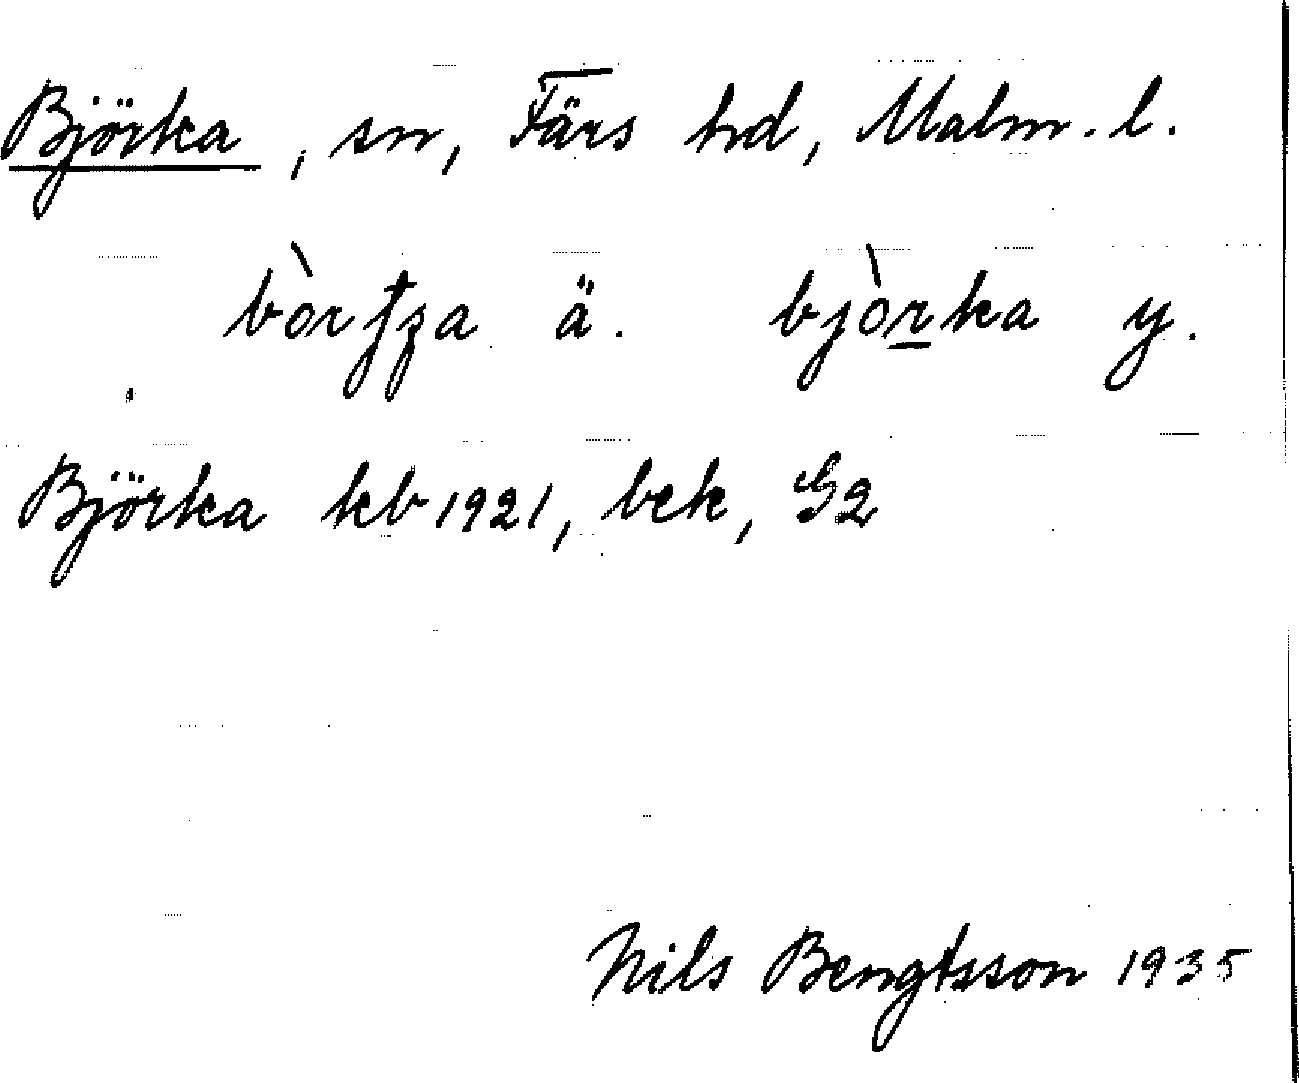 Björka, sn, Färs hd, Malm. l.
bjòrka y.
Björka kb 1921, bek, G2
Nils Bengtsson 1935